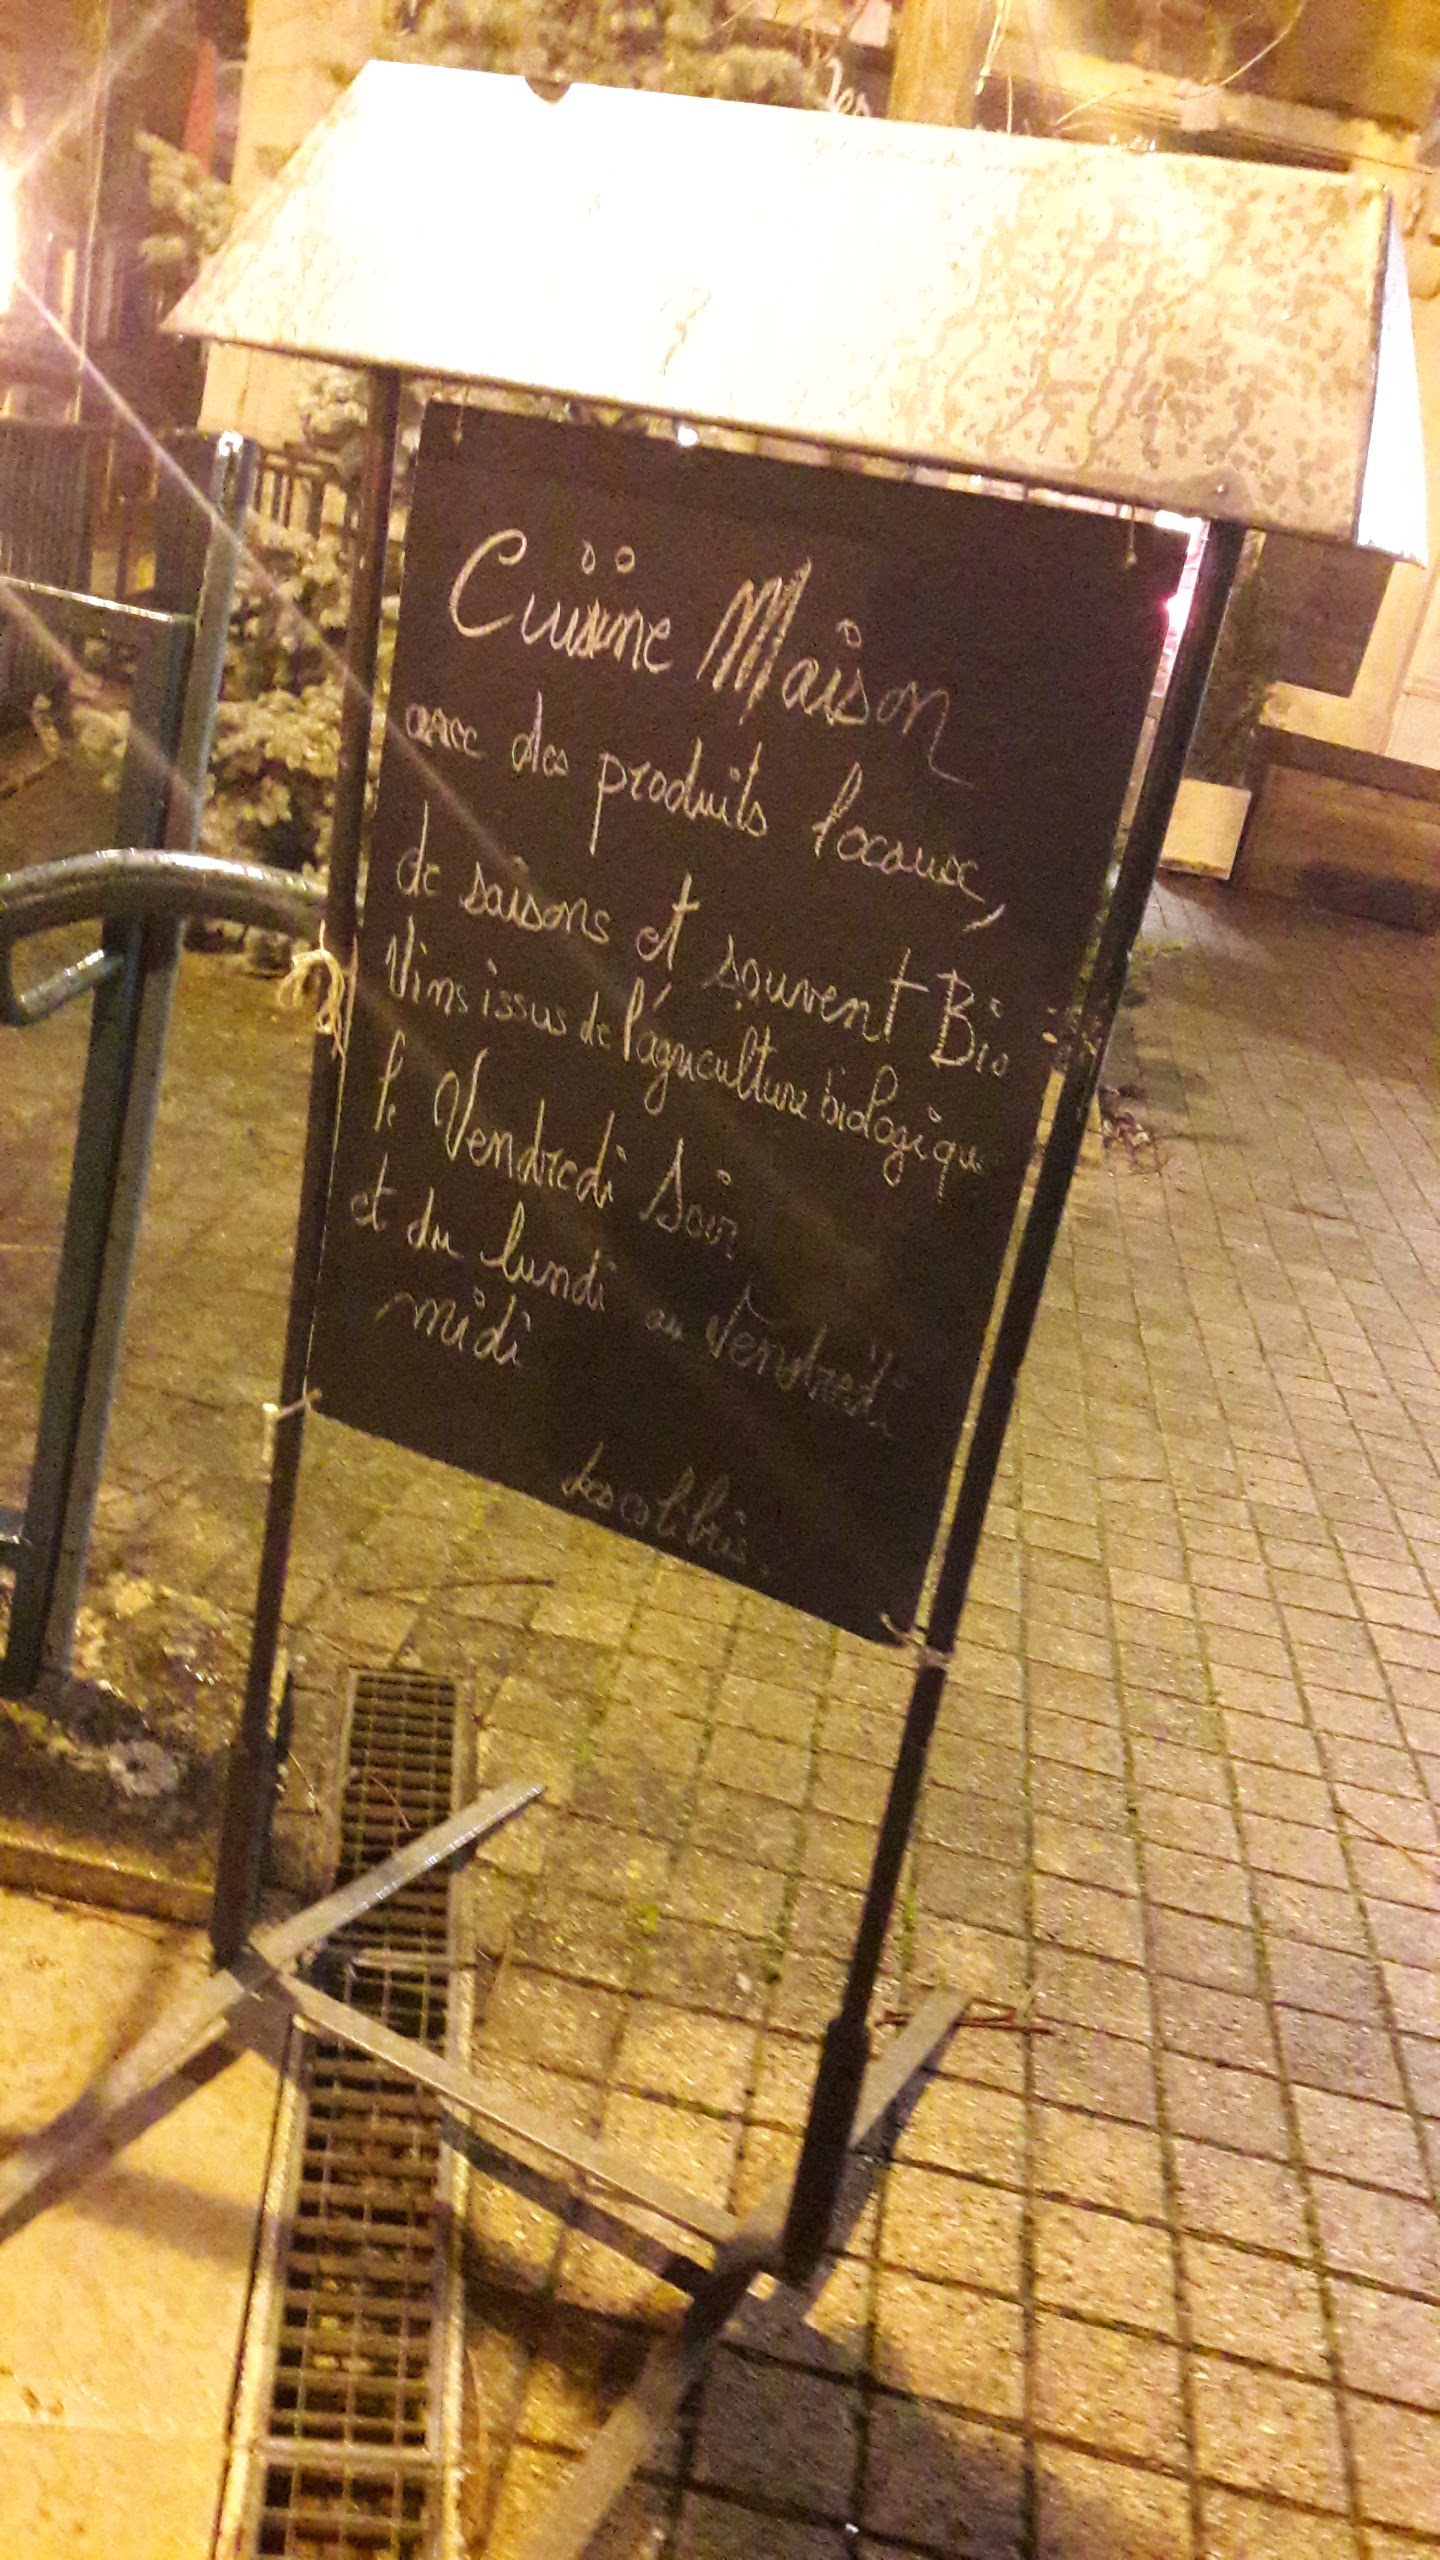 Cuisine Maison
avec des produits locaux,
de saisons et souvent Bio
Vins issus de l'agriculture biologique
le Vendredi Soir
et du lundi au Vendredi
midi
Les colibris